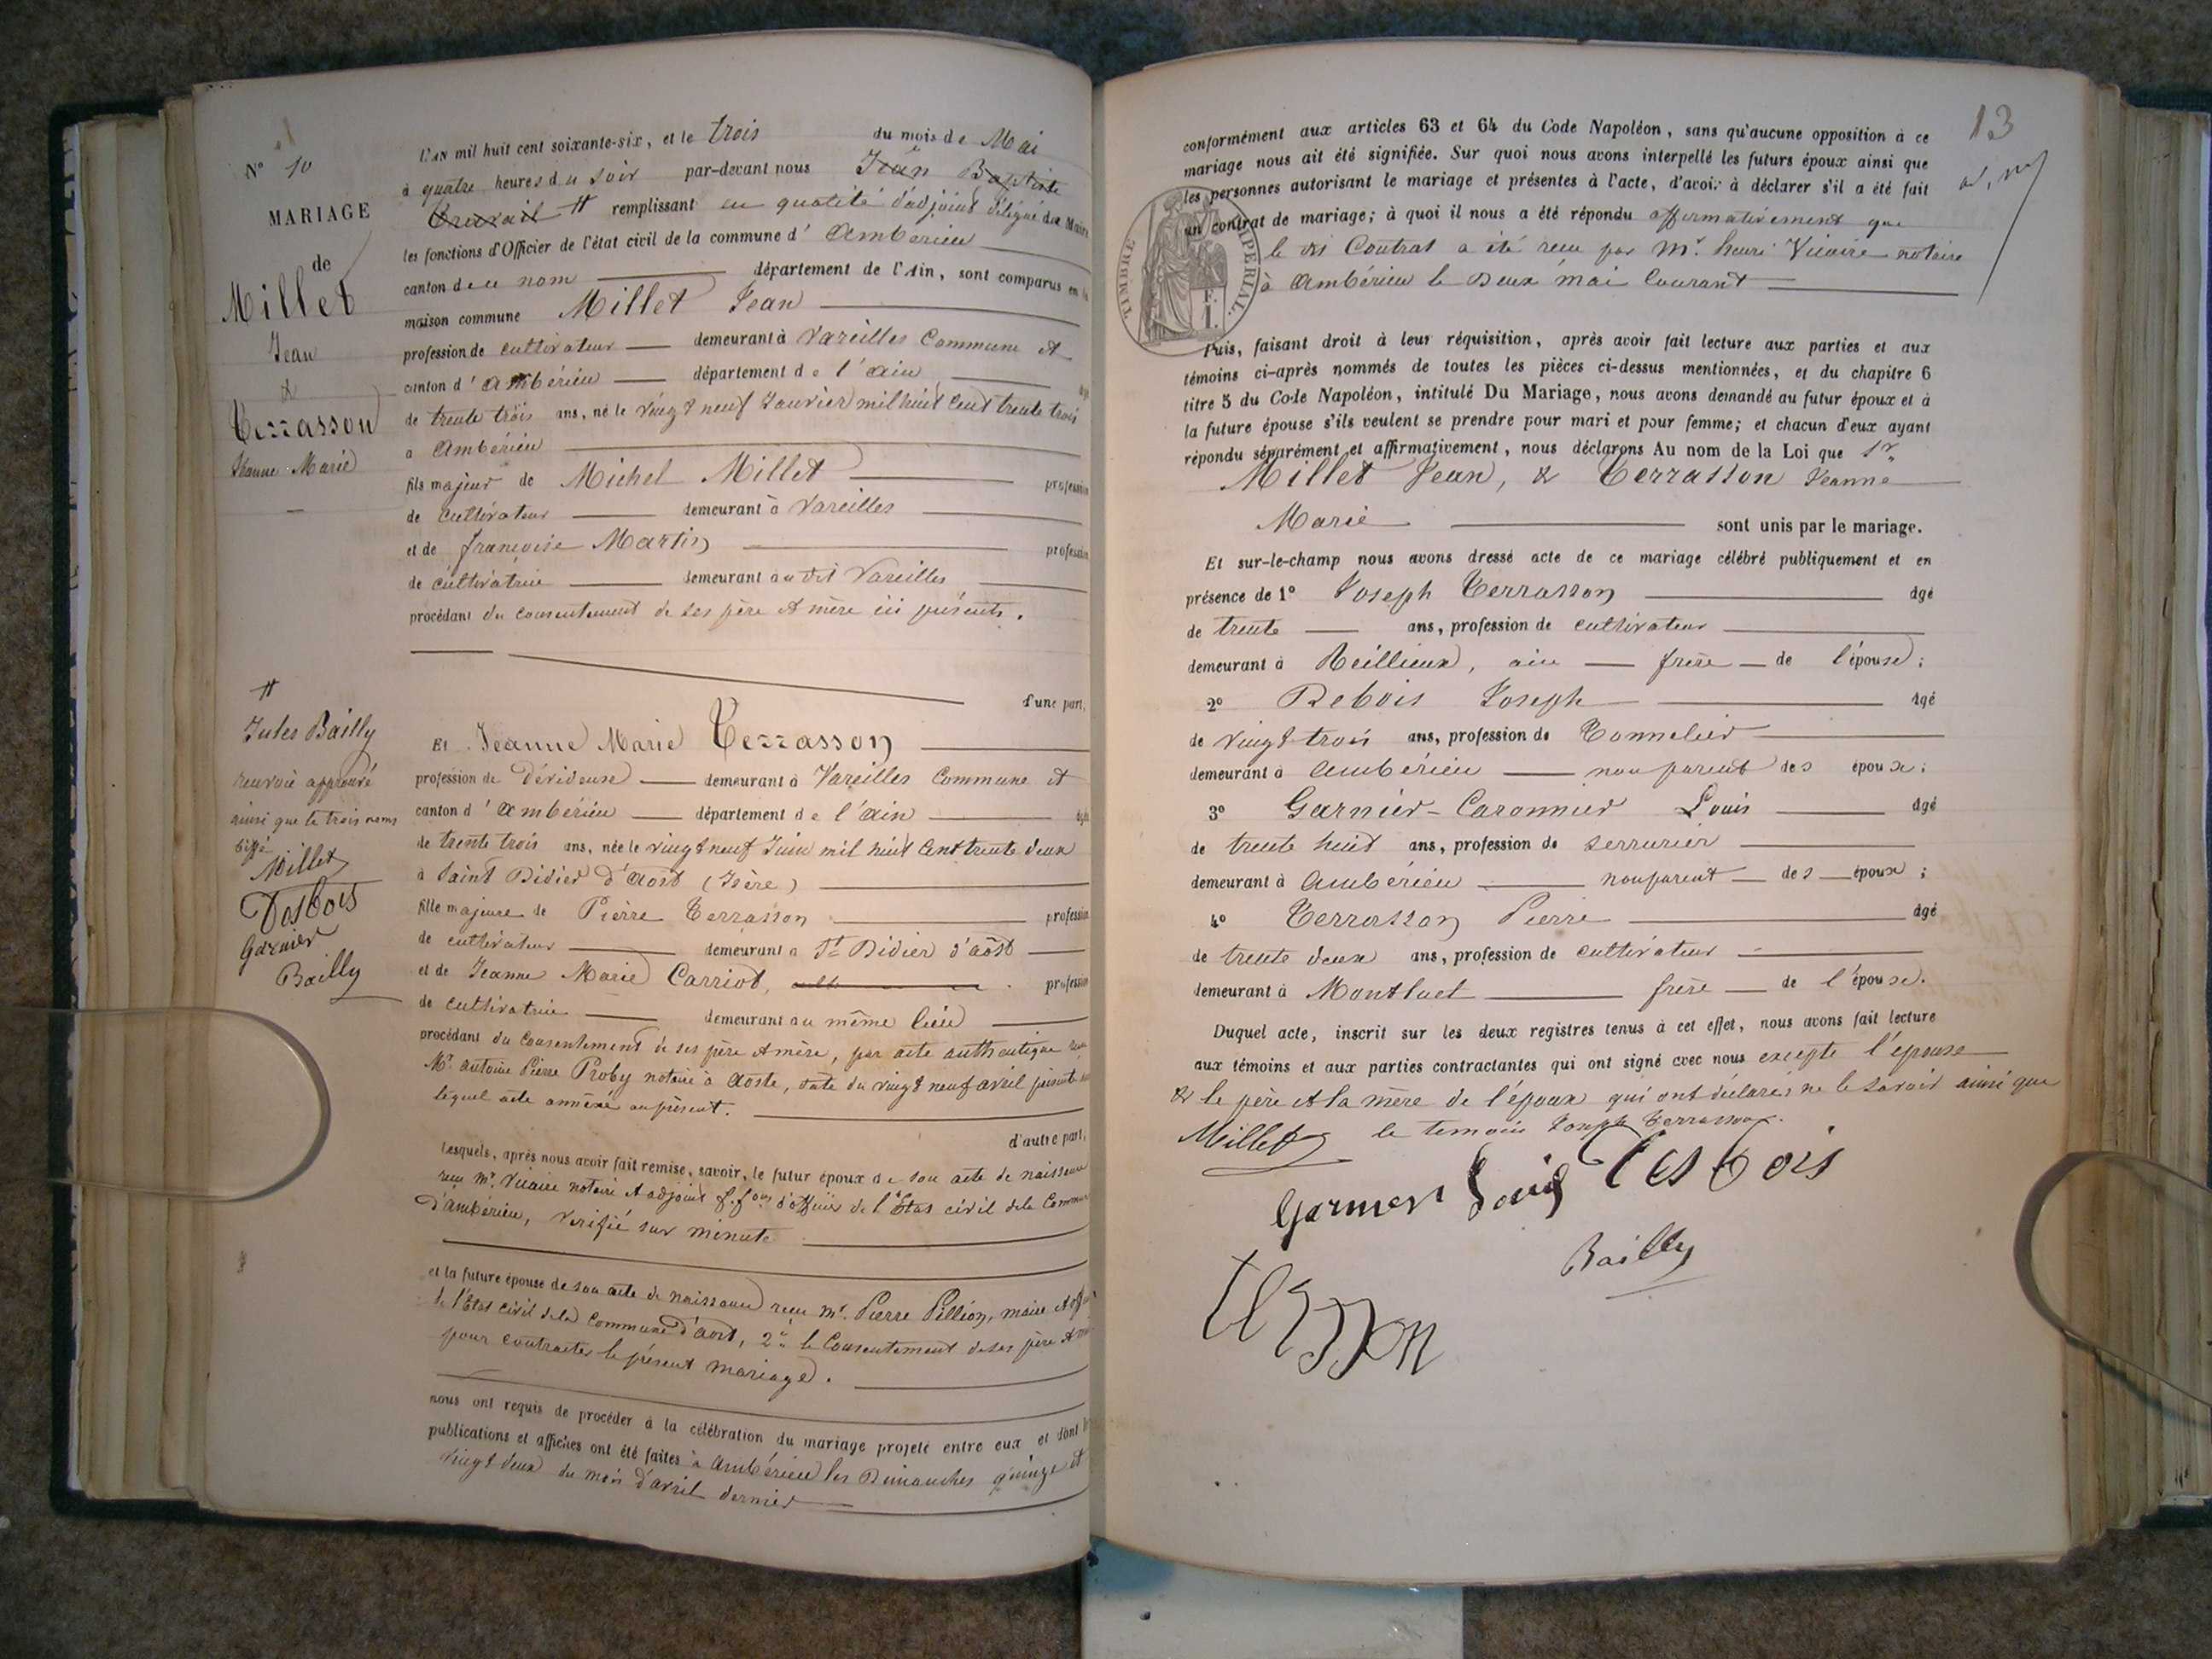 N° 10
MARIAGE
de
Millet
Jean
&
Terrasson
Jeanne Marie
L'AN mil huit cent soixante-six, et le trois du mois de Mai
à quatre heures du soir par-devant nous Jean Baptiste
# remplissant en qualité d'adjoint délégué du Maire
les fonctions d'Officier de l'état civil de la commune d' Ambérieu
canton de ce nom département de l'Ain, sont comparus en la
maison commune Millet Jean
profession de cultivateur demeurant à Vareilles Commune et
canton d' Ambérieu département de l'ain âgé
de trente trois ans, né le vingt neuf Janvier mil huit cent trente trois
a Ambérieu
fils majeur de Michel Millet profession
de cultivateur demeurant à Vareilles
et de françoise Martin profession
de cultivatrice demeurant au dit Vareilles
procédant du consentement de ses père et mère ici présents.
d'une part,
#
Jules Bailly
renvoi approuvé
ainsi que les trois noms
biffé
Millet
Desbois
Garnier
Bailly
Et Jeanne Marie Terrasson
profession de dévideuse demeurant à Vareilles Commune et
canton d' Ambérieu département de l'ain âgée
de trente trois ans, née le vingt neuf Juin mil huit cent trente deux
à Saint Didier d'Aost (Isère)
fille majeure de Pierre Terrasson profession
de cultivateur demeurant a St Didier d'aôst
et de Jeanne Marie Carriot, profession
de cultivatrice demeurant au même lieu
procédant du consentement de ses père et mère, par acte authentique reçu
Mr. antoine Pierre Proby notaire à Aoste, daté du vingt neuf avril
lequel acte annéxé au présent.
d'autre part,
Lesquels, après nous avoir fait remise, savoir, le futur époux de son acte de naissance
reçu mr. Vicaire notaire et adjoint f.fons d'officier de l'État civil de la Commune
d'ambérieu, vérifié sur minute
et la future épouse de son acte de naissance reçu mr. Pierre Pillion, maire et
de l'État civil de la Commune d'aost, 2° le Consentement de ses père et mère
pour contracter le présent mariage.
nous ont requis de procéder à la célébration du mariage projeté entre eux et dont les
publications et affiches ont été faites à Ambérieu les Dimanches quinze et
vingt deux du mois d'avril dernier
13
conformément aux articles 63 et 64 du Code Napoléon, sans qu'aucune opposition à ce
mariage nous ait été signifiée. Sur quoi nous avons interpellé les futurs époux ainsi que
les personnes autorisant le mariage et présentes à l'acte, d'avoir à déclarer s'il a été fait
un contrat de mariage; à quoi il nous a été répondu affirmativement que
le dit Contrat a été reçu par mr. henri Vicaire notaire
à Ambérieu le Deux mai Courant
TIMBRE IMPERIAL.
Puis, faisant droit à leur réquisition, après avoir fait lecture aux parties et aux
témoins ci-après nommés de toutes les pièces ci-dessus mentionnées, et du chapitre 6
titre 5 du Code Napoléon, intitulé Du Mariage, nous avons demandé au futur époux et à
la future épouse s'ils veulent se prendre pour mari et pour femme; et chacun d'eux ayant
répondu séparément et affirmativement, nous déclarons Au nom de la Loi que
Millet Jean, & Terrasson Jeanne
Marie sont unis par le mariage.
Et sur-le-champ nous avons dressé acte de ce mariage célébré publiquement et en
présence de 1° Joseph Terrasson âgé
de trente ans, profession de cultivateur
demeurant à Reillieux, ain frère de l'épouse;
2° Debois Joseph âgé
de vingt trois ans, profession de Tonnelier
demeurant à Ambérieu non parent des époux;
3° Garnier-Caronnier Louis âgé
de trente huit ans, profession de serrurier
demeurant à Ambérieu non parent des époux;
4° Terrasson Pierre âgé
de trente deux ans, profession de cultivateur
demeurant à Montluel frère de l'épouse.
Duquel acte, inscrit sur les deux registres tenus à cet effet, nous avons fait lecture
aux témoins et aux parties contractantes qui ont signé avec nous excepté l'épouse
& le père et la mère de l'époux qui ont déclaré ne le savoir ainsi que
le temoin Joseph Terrasson.
Millet
Garnier Louis Desbois
Bailly